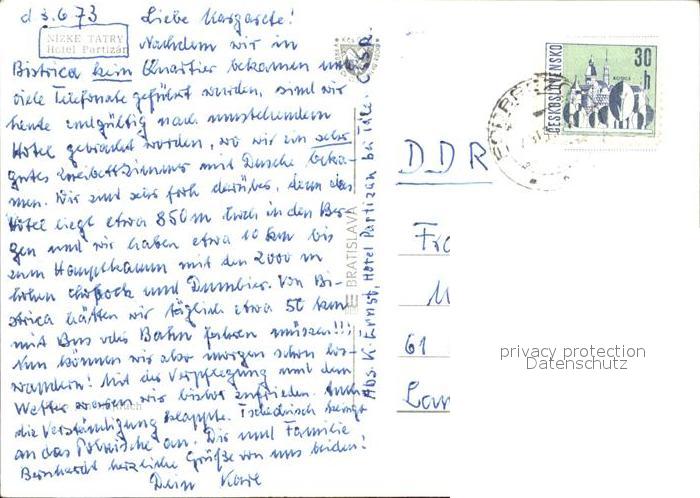 d 3.6.73
Liebe Margarete!
NÍZKE TATRY
Hotel Partizán
Nachdem wir in
Bistrica kein Quartier bekamen und
viele Telefonate geführt wurden, sind wir
heute endgültig nach umstehendem
Hotel gebracht worden, wo wir ein sehr
gutes Zweibettzimmer mit Dusche beka-
men. Wir sind sehr froh darüber, denn das
Hotel liegt etwa 850 m hoch in den Ber-
gen und wir haben etwa 10 km bis
zum Hauptkamm mit den 2000 m
hohen Chopock und Dumbier. Von Bi-
strica hätten wir täglich etwa 50 km
mit Bus oder Bahn fahren müssen!!!
Nun können wir aber morgen schon los-
wandern! Mit der Verpflegung und dem
Wetter waren wir bisher zufrieden. Auch
die Verständigung klappte. Tschechisch
an das Polnische an. Dir und Familie
Bernhardt herzliche Grüße von uns beiden!
Dein Karl
Abs. K. Ernst, Hotel Partizán bei Tále. ČSSR.
BRATISLAVA
ČESKOSLOVENSKO
30
h
DDR
Fr
61
privacy protection
Datenschutz